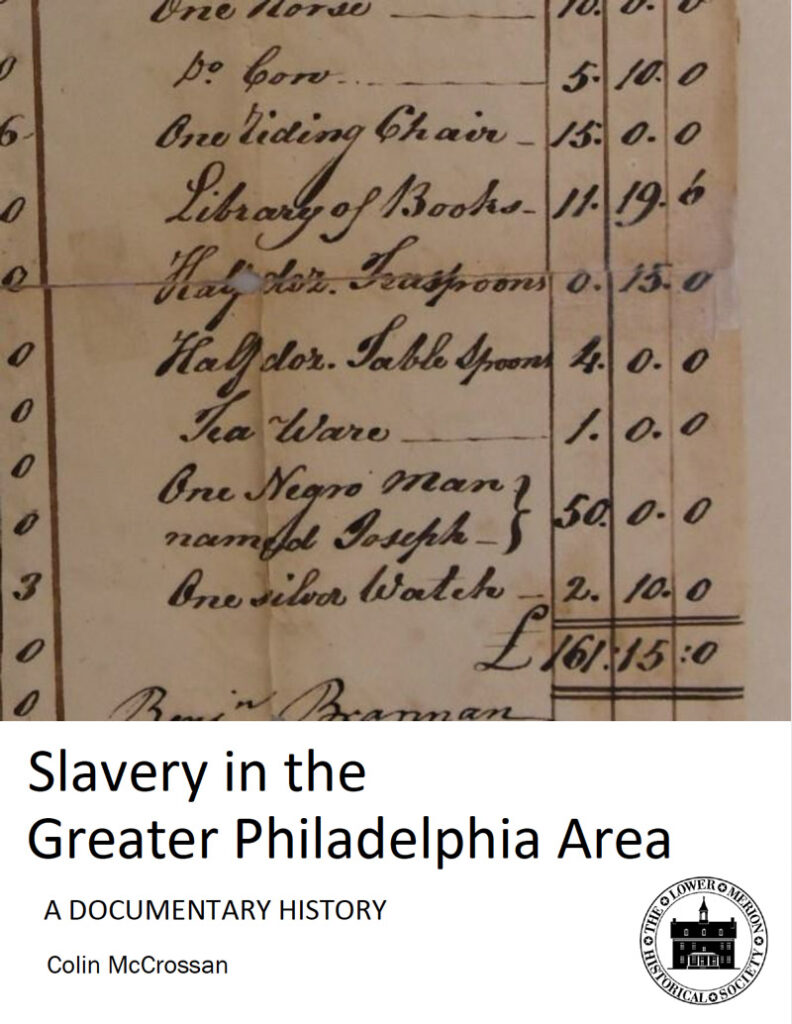 One Horse 10. 0. 0
0 Do. Cow 5. 10. 0
6 One riding Chair 15. 0. 0
0 Library of Books 11. 19. 6
0 Half doz. Teaspoons 0. 15. 0
0 Half doz. Table Spoons 4. 0. 0
0 Tea Ware 1. 0. 0
0 One Negro Man
0 named Joseph } 50. 0. 0
3 One silver Watch 2. 10. 0
0 £ 161: 15: 0
0 Benjn Brannan
Slavery in the
Greater Philadelphia Area
A DOCUMENTARY HISTORY
Colin McCrossan
THE LOWER MERION
HISTORICAL SOCIETY